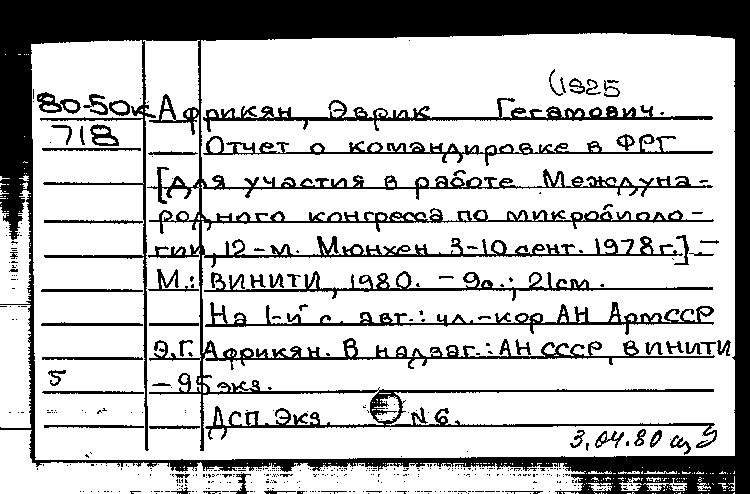 (1925
80-50к Африкян, Эврик Гегамович.
718 Отчет о командировке в ФРГ
[для участия в работе Междуна-
родного конгресса по микробиоло-
гии, 12-м. Мюнхен. 3-10 сент. 1978г.].-
М.: ВИНИТИ, 1980. - 9л.; 21см.
На 1-й с. авт.: чл.-кор АН АрмССР
Э.Г. Африкян. В надзаг.: АН СССР, ВИНИТИ
5 - 95 экз.
ДСП. Экз. N 6.
3.04.80